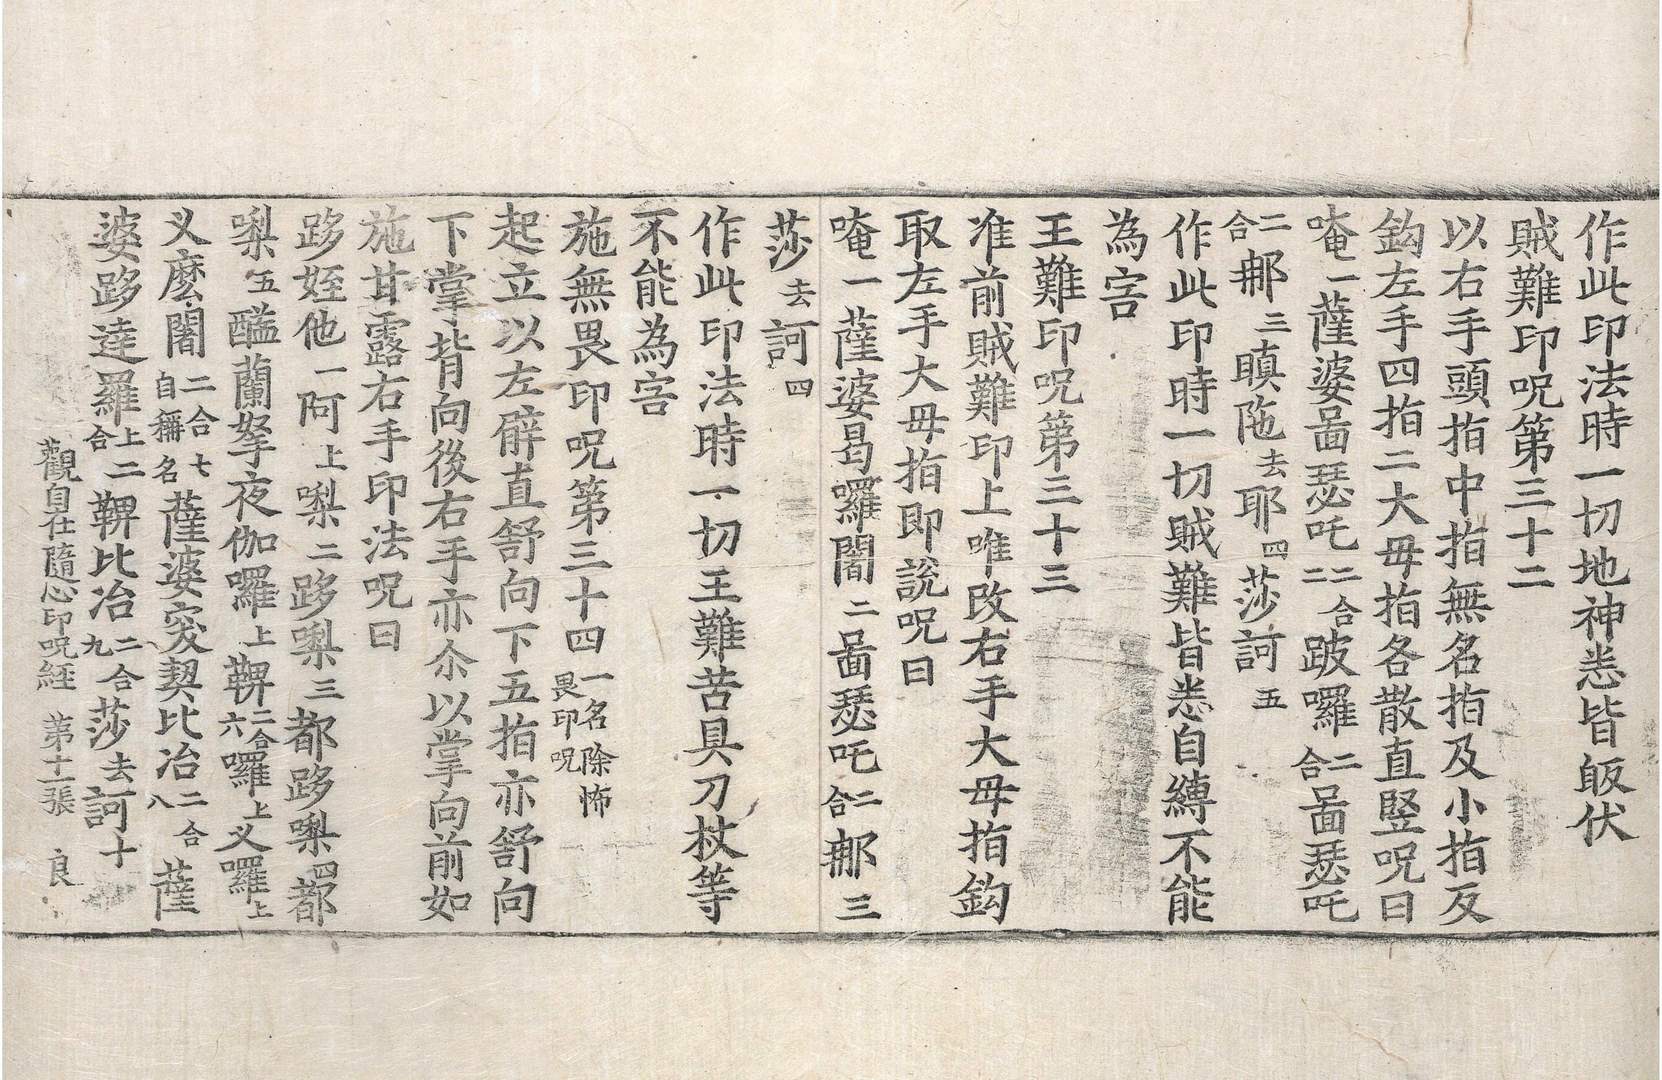 作此印法時一切地神悉皆皈伏
賊難印呪第三十二
以右手頭指中指無名指及小指反
鉤左手四指二大母指各散直竪呪曰
唵一薩婆啚瑟吒二合二跛囉二合啚瑟吒
二合郍三瞋陁去耶四莎訶五
作此印時一切賊難皆悉自縛不能
為害
王難印呪第三十三
准前賊難印上唯改右手大母指鉤
取左手大母指即說呪曰
唵一薩婆曷囉闍二啚瑟吒二合郍三
莎去訶四
作此印法時一切王難苦具刀杖等
不能為害
施無畏印呪第三十四一名除怖畏印呪
起立以左臂直舒向下五指亦舒向
下掌背向後右手亦尒以掌向前如
施甘露右手印法呪曰
跢姪他一阿上㗚二跢㗚三都跢㗚四都
㗚五醯蘭拏夜伽囉上鞞二合六囉上义囉上
义麽闍二合七自稱名薩婆突契比冶二合八薩
婆跢達羅上二合鞞比冶二合九莎去訶十
觀自在隨心印呪經 第十一張 良